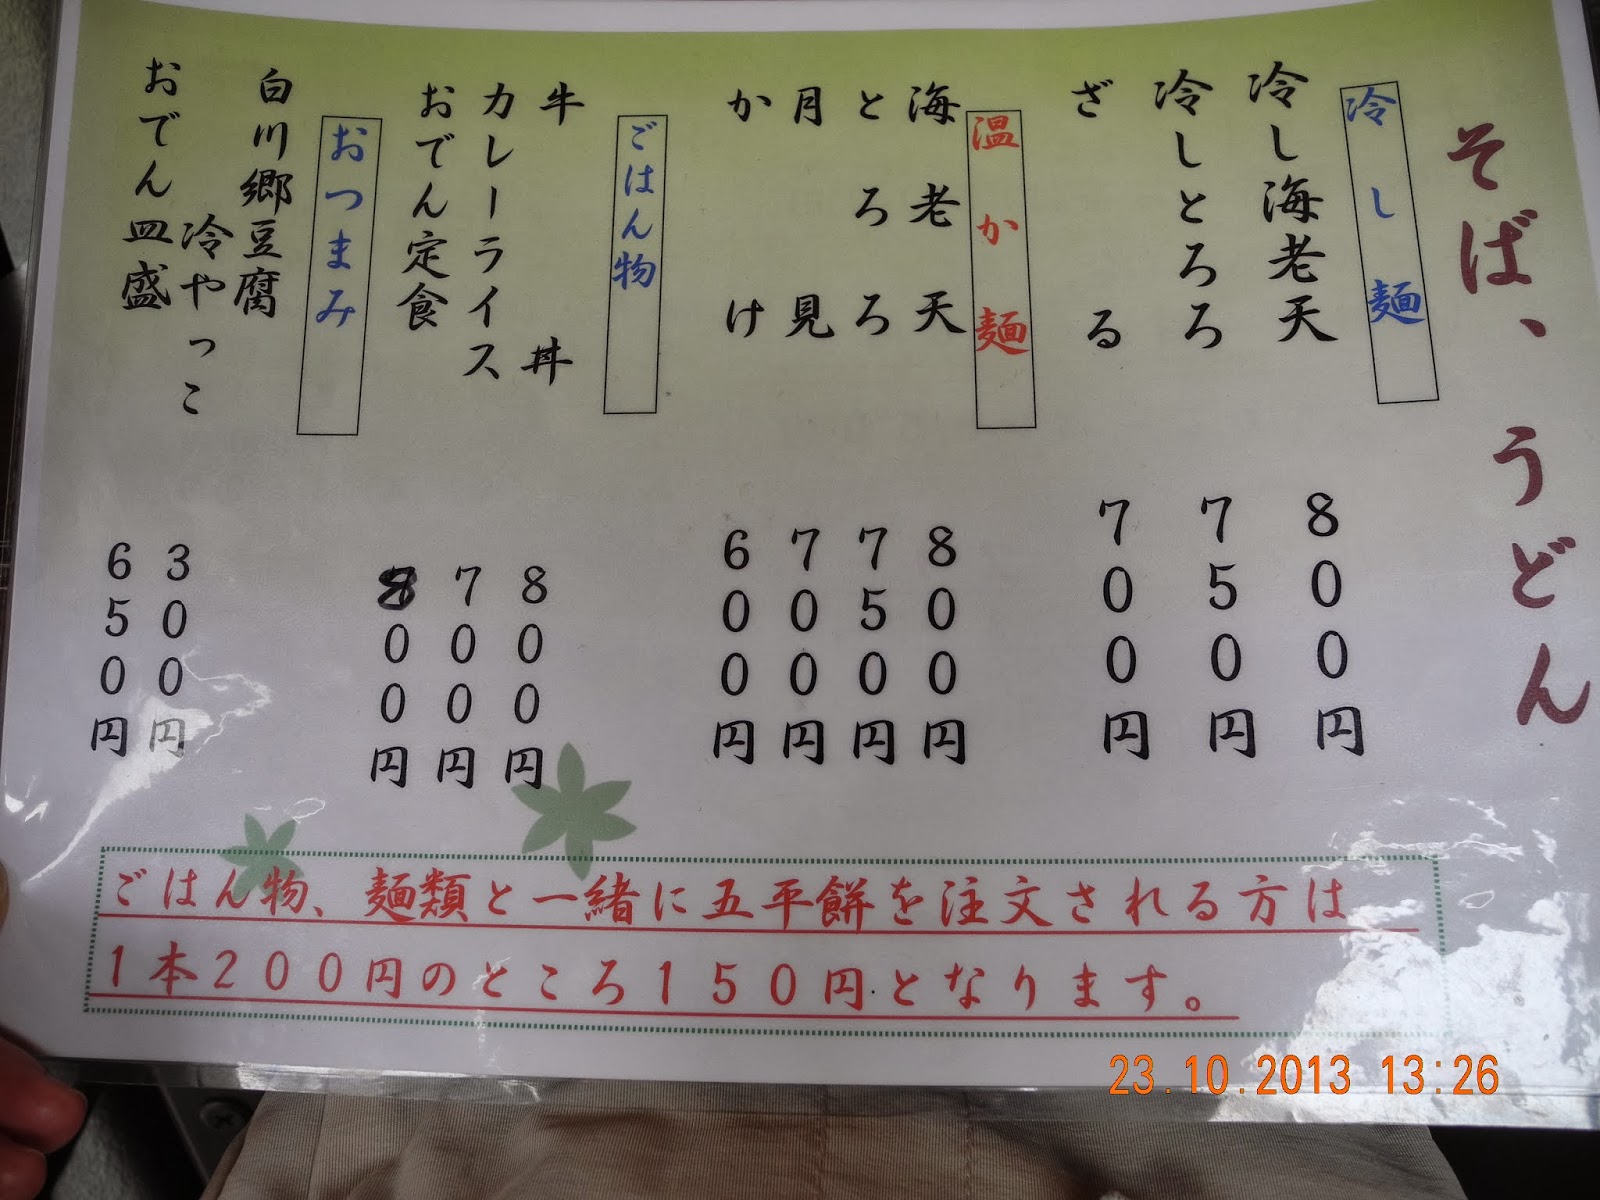 そば、うどん
冷し麺
冷し海老天 800円
冷しとろろ 750円
ざる 700円
温か麺
海老天 800円
とろろ 750円
月見 700円
かけ 600円
ごはん物
牛丼 800円
カレーライス 700円
おでん定食 800円
おつまみ
白川郷豆腐
冷やっこ 300円
おでん皿盛 650円
ごはん物、麺類と一緒に五平餅を注文される方は
1本200円のところ150円となります。
23.10.2013 13:26